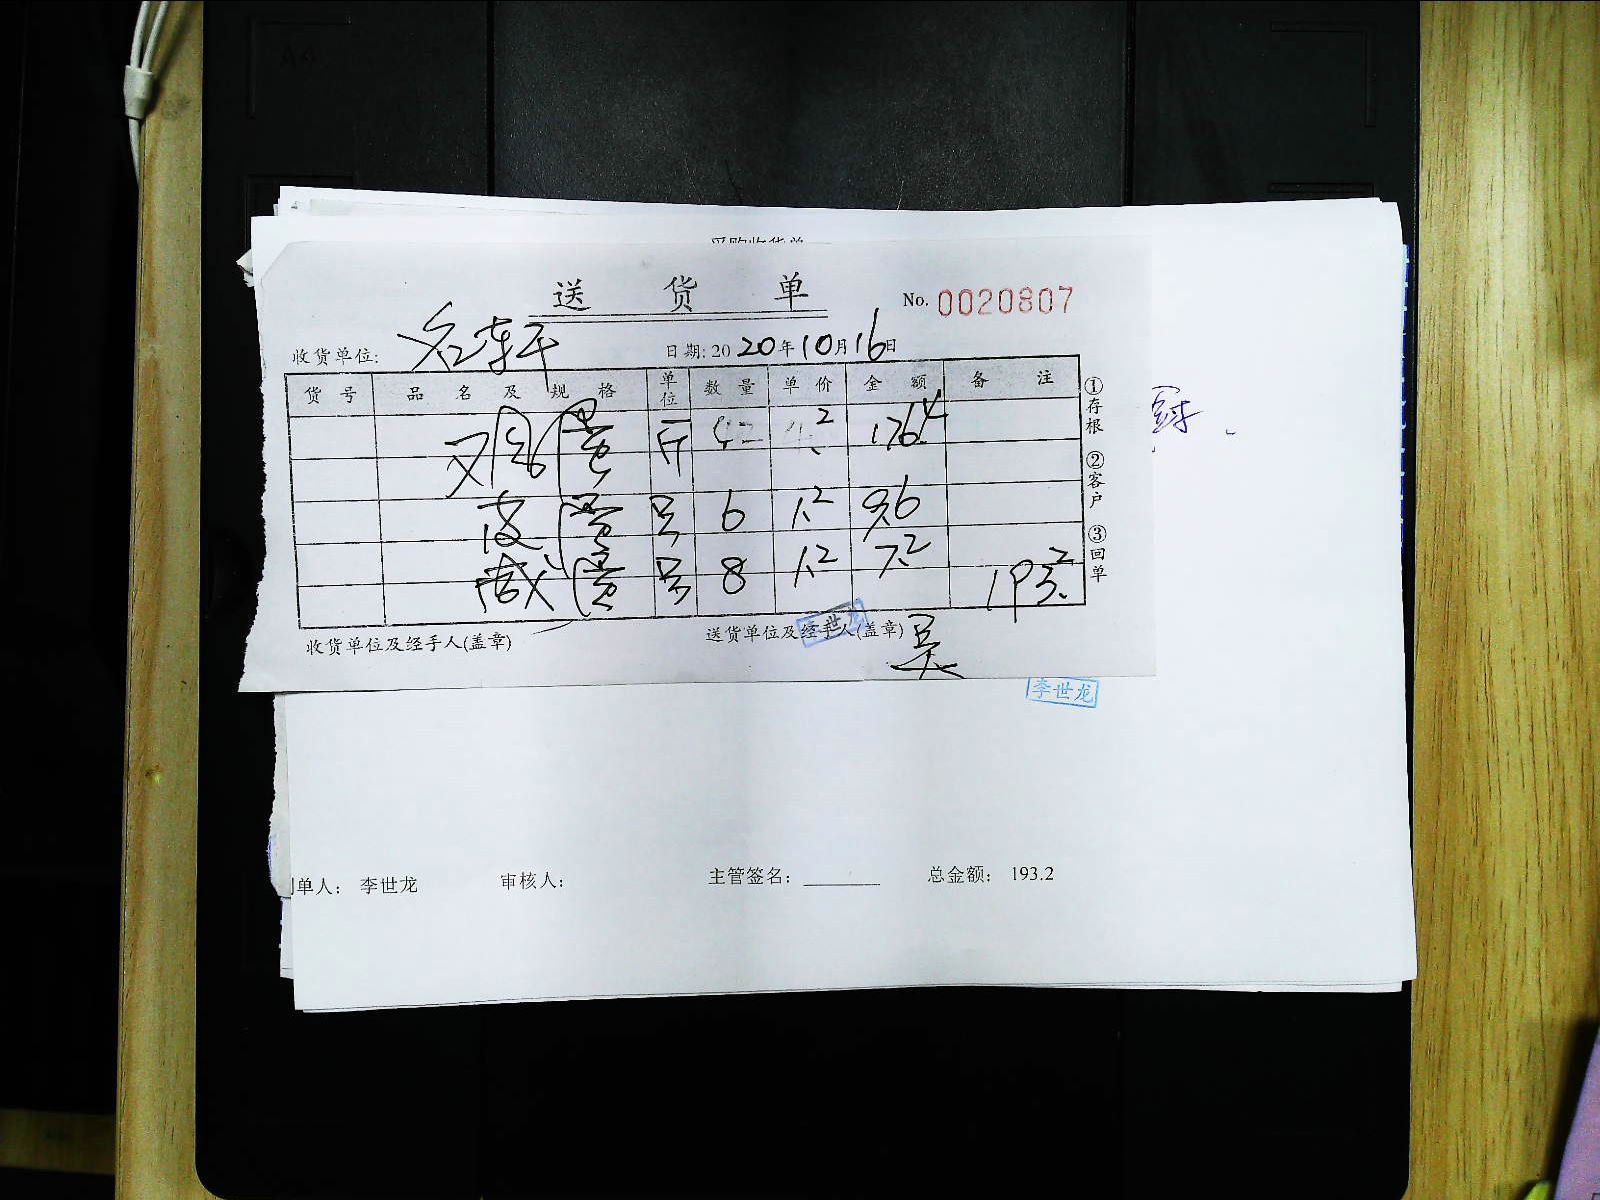 送 货 单
No. 0020807
收货单位: 名轩
日期: 20 20 年 10 月 16 日
货 号 品 名 及 规 格 单位 数 量 单 价 金 额 备 注
鸡蛋 斤 42 4.2 176.4
皮蛋 6 1.2 9.6
咸蛋 8 1.2 7.2
193.2
①存根 ②客户 ③回单
收货单位及经手人(盖章) 送货单位及经手人(盖章) 吴
李世龙
李世龙
制单人: 李世龙 审核人: 主管签名: 总金额: 193.2